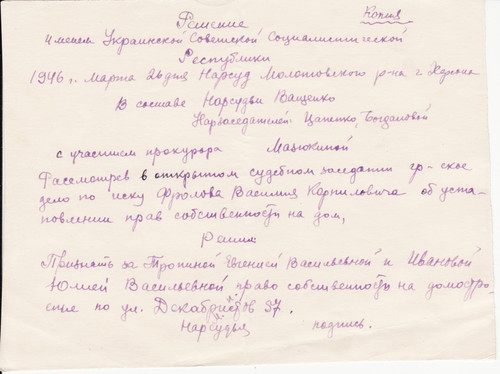 Копия
Решение
Именем Украинской Советской Социалистической
Республики
1946 г. Марта 26 дня Нарсуд Молотовского р-на г. Херсона
В составе Нарсудьи Ващенко
Нарзаседателей Цапенко, Богдановой
с участием прокурора Мацюкиной
Рассмотрев в открытом судебном заседании гр-ское
дело по иску Фролова Василия Корниловича об уста-
новлении прав собственности на дом,
Решил
Признать за Тропиной Евгенией Васильевной и Ивановой
Юлией Васильевной право собственности на домостро-
енье по ул. Декабристов 37.
Нарсудья подпись.